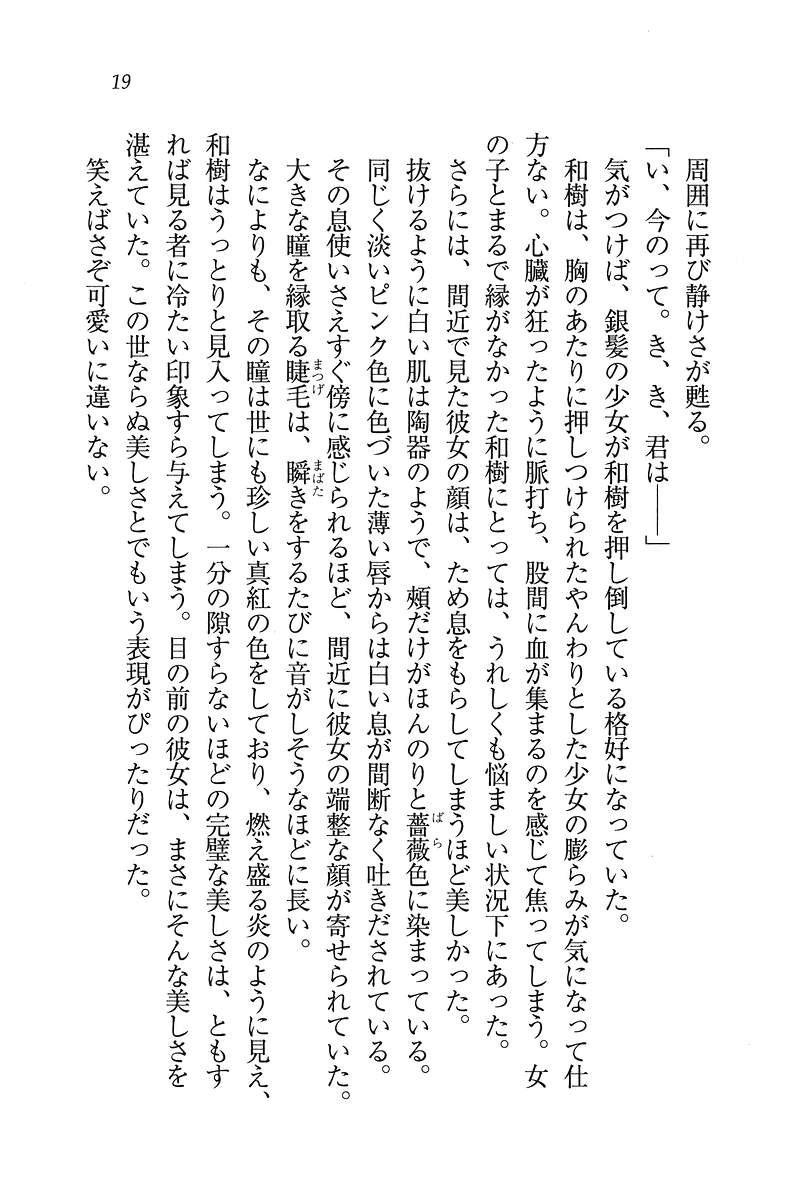 19
周囲に再び静けさが甦る。
「い、今のって。き、き、君は――」
気がつけば、銀髪の少女が和樹を押し倒している格好になっていた。
和樹は、胸のあたりに押しつけられたやんわりとした少女の膨らみが気になって仕
方ない。心臓が狂ったように脈打ち、股間に血が集まるのを感じて焦ってしまう。女
の子とまるで縁がなかった和樹にとっては、うれしくも悩ましい状況下にあった。
さらには、間近で見た彼女の顔は、ため息をもらしてしまうほど美しかった。
抜けるように白い肌は陶器のようで、頰だけがほんのりと薔薇色に染まっている。
同じく淡いピンク色に色づいた薄い唇からは白い息が間断なく吐きだされている。
その息使いさえすぐ傍に感じられるほど、間近に彼女の端整な顔が寄せられていた。
大きな瞳を縁取る睫毛は、瞬きをするたびに音がしそうなほどに長い。
なによりも、その瞳は世にも珍しい真紅の色をしており、燃え盛る炎のように見え、
和樹はうっとりと見入ってしまう。一分の隙すらないほどの完璧な美しさは、ともす
れば見る者に冷たい印象すら与えてしまう。目の前の彼女は、まさにそんな美しさを
湛えていた。この世ならぬ美しさとでもいう表現がぴったりだった。
笑えばさぞ可愛いに違いない。